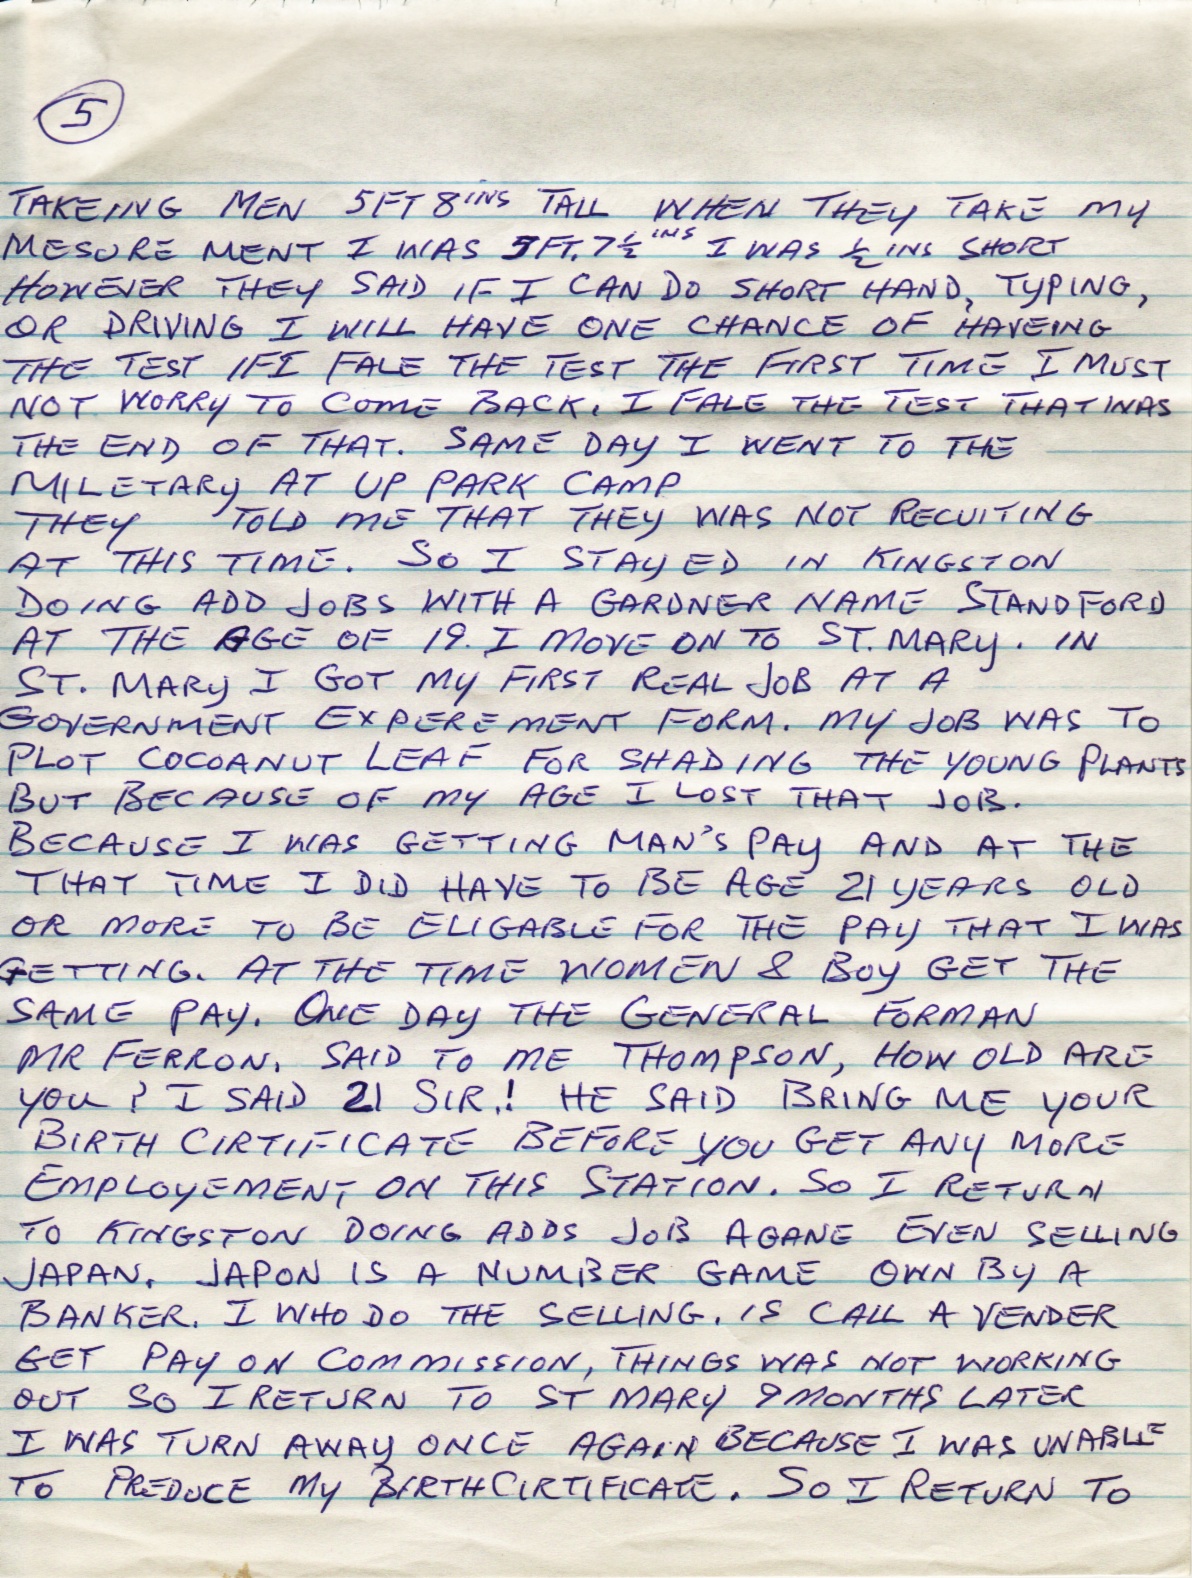 5
TAKEING MEN 5FT 8INS TALL WHEN THEY TAKE MY
MESURE MENT I WAS 5FT. 7½ INS I WAS ½ INS SHORT
HOWEVER THEY SAID IF I CAN DO SHORT HAND, TYPING,
OR DRIVING I WILL HAVE ONE CHANCE OF HAVEING
THE TEST IF I FALE THE TEST THE FIRST TIME I MUST
NOT WORRY TO COME BACK. I FALE THE TEST THAT WAS
THE END OF THAT. SAME DAY I WENT TO THE
MILETARY AT UP PARK CAMP
THEY TOLD ME THAT THEY WAS NOT RECUITING
AT THIS TIME. SO I STAYED IN KINGSTON
DOING ADD JOBS WITH A GARDNER NAME STANDFORD
AT THE AGE OF 19. I MOVE ON TO ST. MARY. IN
ST. MARY I GOT MY FIRST REAL JOB AT A
GOVERNMENT EXPEREMENT FORM. MY JOB WAS TO
PLOT COCOANUT LEAF FOR SHADING THE YOUNG PLANTS
BUT BECAUSE OF MY AGE I LOST THAT JOB.
BECAUSE I WAS GETTING MAN'S PAY AND AT THE
THAT TIME I DID HAVE TO BE AGE 21 YEARS OLD
OR MORE TO BE ELIGABLE FOR THE PAY THAT I WAS
GETTING. AT THE TIME WOMEN & BOY GET THE
SAME PAY. ONE DAY THE GENERAL FORMAN
MR FERRON. SAID TO ME THOMPSON, HOW OLD ARE
YOU? I SAID 21 SIR.! HE SAID BRING ME YOUR
BIRTH CIRTIFICATE BEFORE YOU GET ANY MORE
EMPLOYEMENT ON THIS STATION. SO I RETURN
TO KINGSTON DOING ADDS JOB AGANE EVEN SELLING
JAPAN. JAPON IS A NUMBER GAME OWN BY A
BANKER. I WHO DO THE SELLING. IS CALL A VENDER
GET PAY ON COMMISSION, THINGS WAS NOT WORKING
OUT SO I RETURN TO ST MARY 9 MONTHS LATER
I WAS TURN AWAY ONCE AGAIN BECAUSE I WAS UNABLE
TO PREDUCE MY BIRTH CIRTIFICATE. SO I RETURN TO